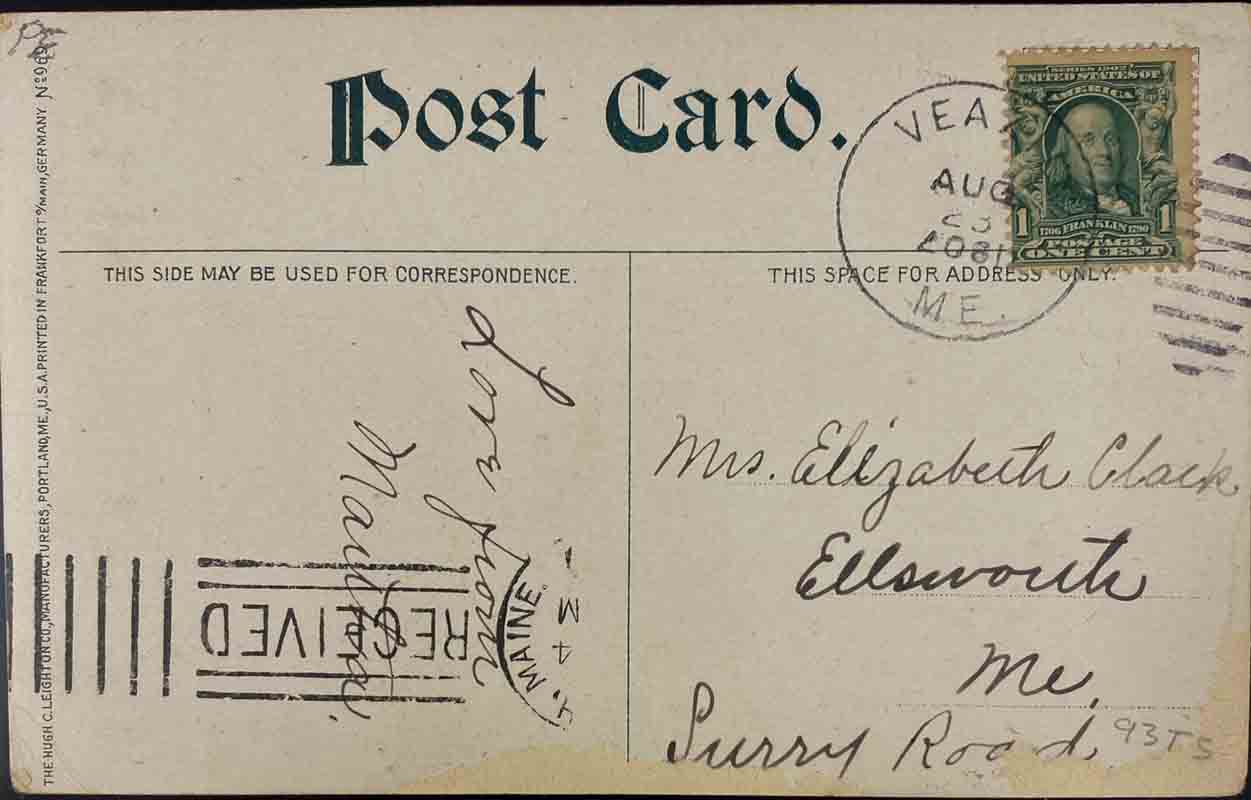 Post Card.
THIS SIDE MAY BE USED FOR CORRESPONDENCE.
THIS SPACE FOR ADDRESS ONLY.
SERIES 1902
UNITED STATES OF
AMERICA
1 1706 FRANKLIN 1790 1
POSTAGE
ONE CENT
AUG
23
ME.
Love from
Mrs. Elizabeth Clack
Ellsworth
Me,
Surry Road.
93TS
RECEIVED
MAINE.
THE HUGH C. LEIGHTON CO., MANUFACTURERS, PORTLAND, ME., U.S.A. PRINTED IN FRANKFORT O/MAIN, GERMANY No 969